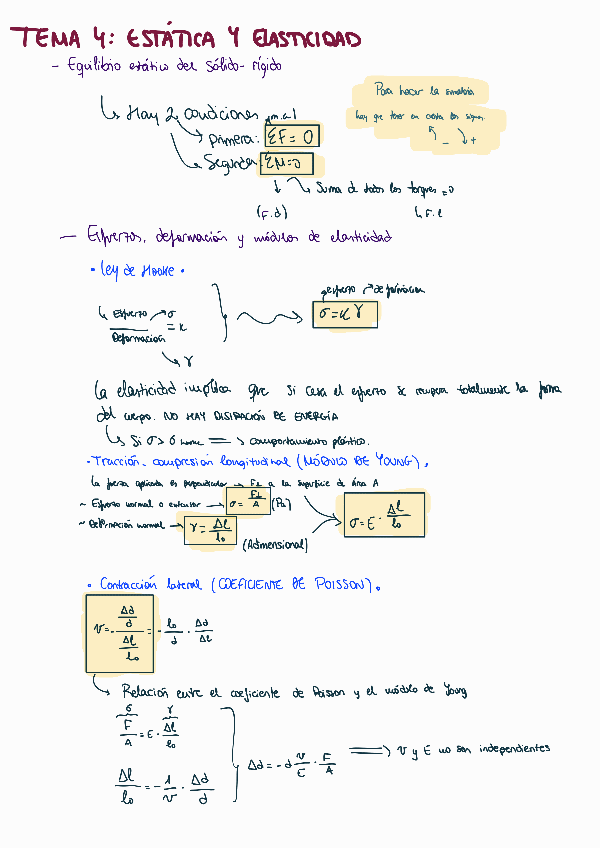 TEMA 4: ESTÁTICA Y ELASTICIDAD
- Equilibrio estático del sólido-rígido
Para hacer la
hay que tener en cuenta los signos.
- +
↳ Hay 2 condiciones
Primera: ΣF = 0
Segunda: ΣM=0
Suma de todos los torques = 0
(F.d)
↳ F.l
- Esfuerzos, deformación y módulos de elasticidad
• Ley de Hooke •
esfuerzo deformación
↳ Esfuerzo → σ
Deformación = K
↳ γ
σ = K γ
La elasticidad implica que si cesa el esfuerzo se recupera totalmente la forma
del cuerpo. NO HAY DISIPACIÓN DE ENERGÍA
↳ Si σ > σ => comportamiento plástico.
• Tracción-compresión longitudinal (MÓDULO DE YOUNG).
La fuerza aplicada es perpendicular → F⊥ a la superficie de área A
~ Esfuerzo normal o → σ = F⊥/A (Pa)
~ Deformación normal → γ = Δl/l₀
(Adimensional)
σ = E · Δl/l₀
• Contracción lateral (COEFICIENTE DE POISSON).
ν = - (Δd/d)/(Δl/l₀) = - l₀/d · Δd/Δl
Relación entre el coeficiente de Poisson y el módulo de Young
σ γ
F/A = E · Δl/l₀
Δl/l₀ = - 1/ν · Δd/d
Δd = - d ν/E · F/A
=> ν y E no son independientes